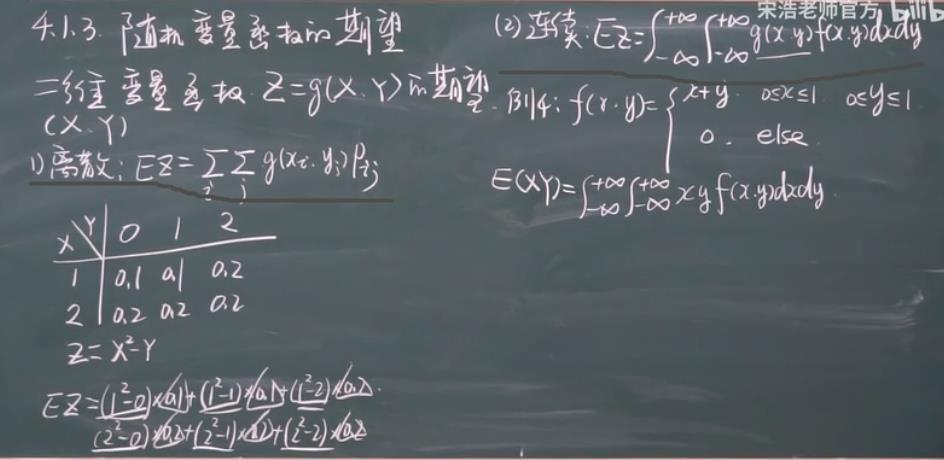 4.1.3. 随机变量函数的期望
二维变量函数 Z=g(X.Y)的期望.
(X.Y)
1) 离散: EZ=∑i ∑j g(xi.yj)Pij
X\Y 0 1 2
1 0.1 0.1 0.2
2 0.2 0.2 0.2
Z=X²-Y
EZ=(1²-0)×0.1+(1²-1)×0.1+(1²-2)×0.2
(2²-0)×0.2+(2²-1)×0.2+(2²-2)×0.2
宋浩老师官方 bilib
(2) 连续: EZ=∫-∞+∞∫-∞+∞ g(x.y)f(x.y)dxdy
例4: f(x.y)={x+y. 0≤x≤1 0≤y≤1
0. else.
E(XY)=∫-∞+∞∫-∞+∞ xyf(x.y)dxdy.